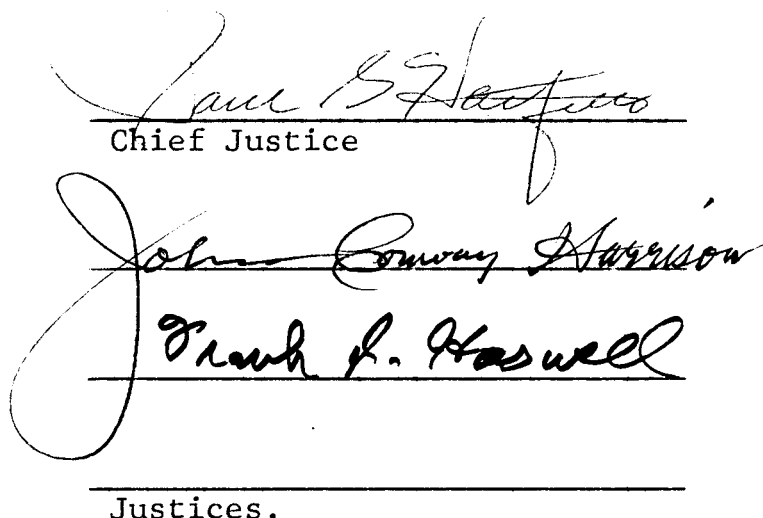 Paul G Hatfield
Chief Justice
John Conway Harrison
Frank I. Haswell
Justices.